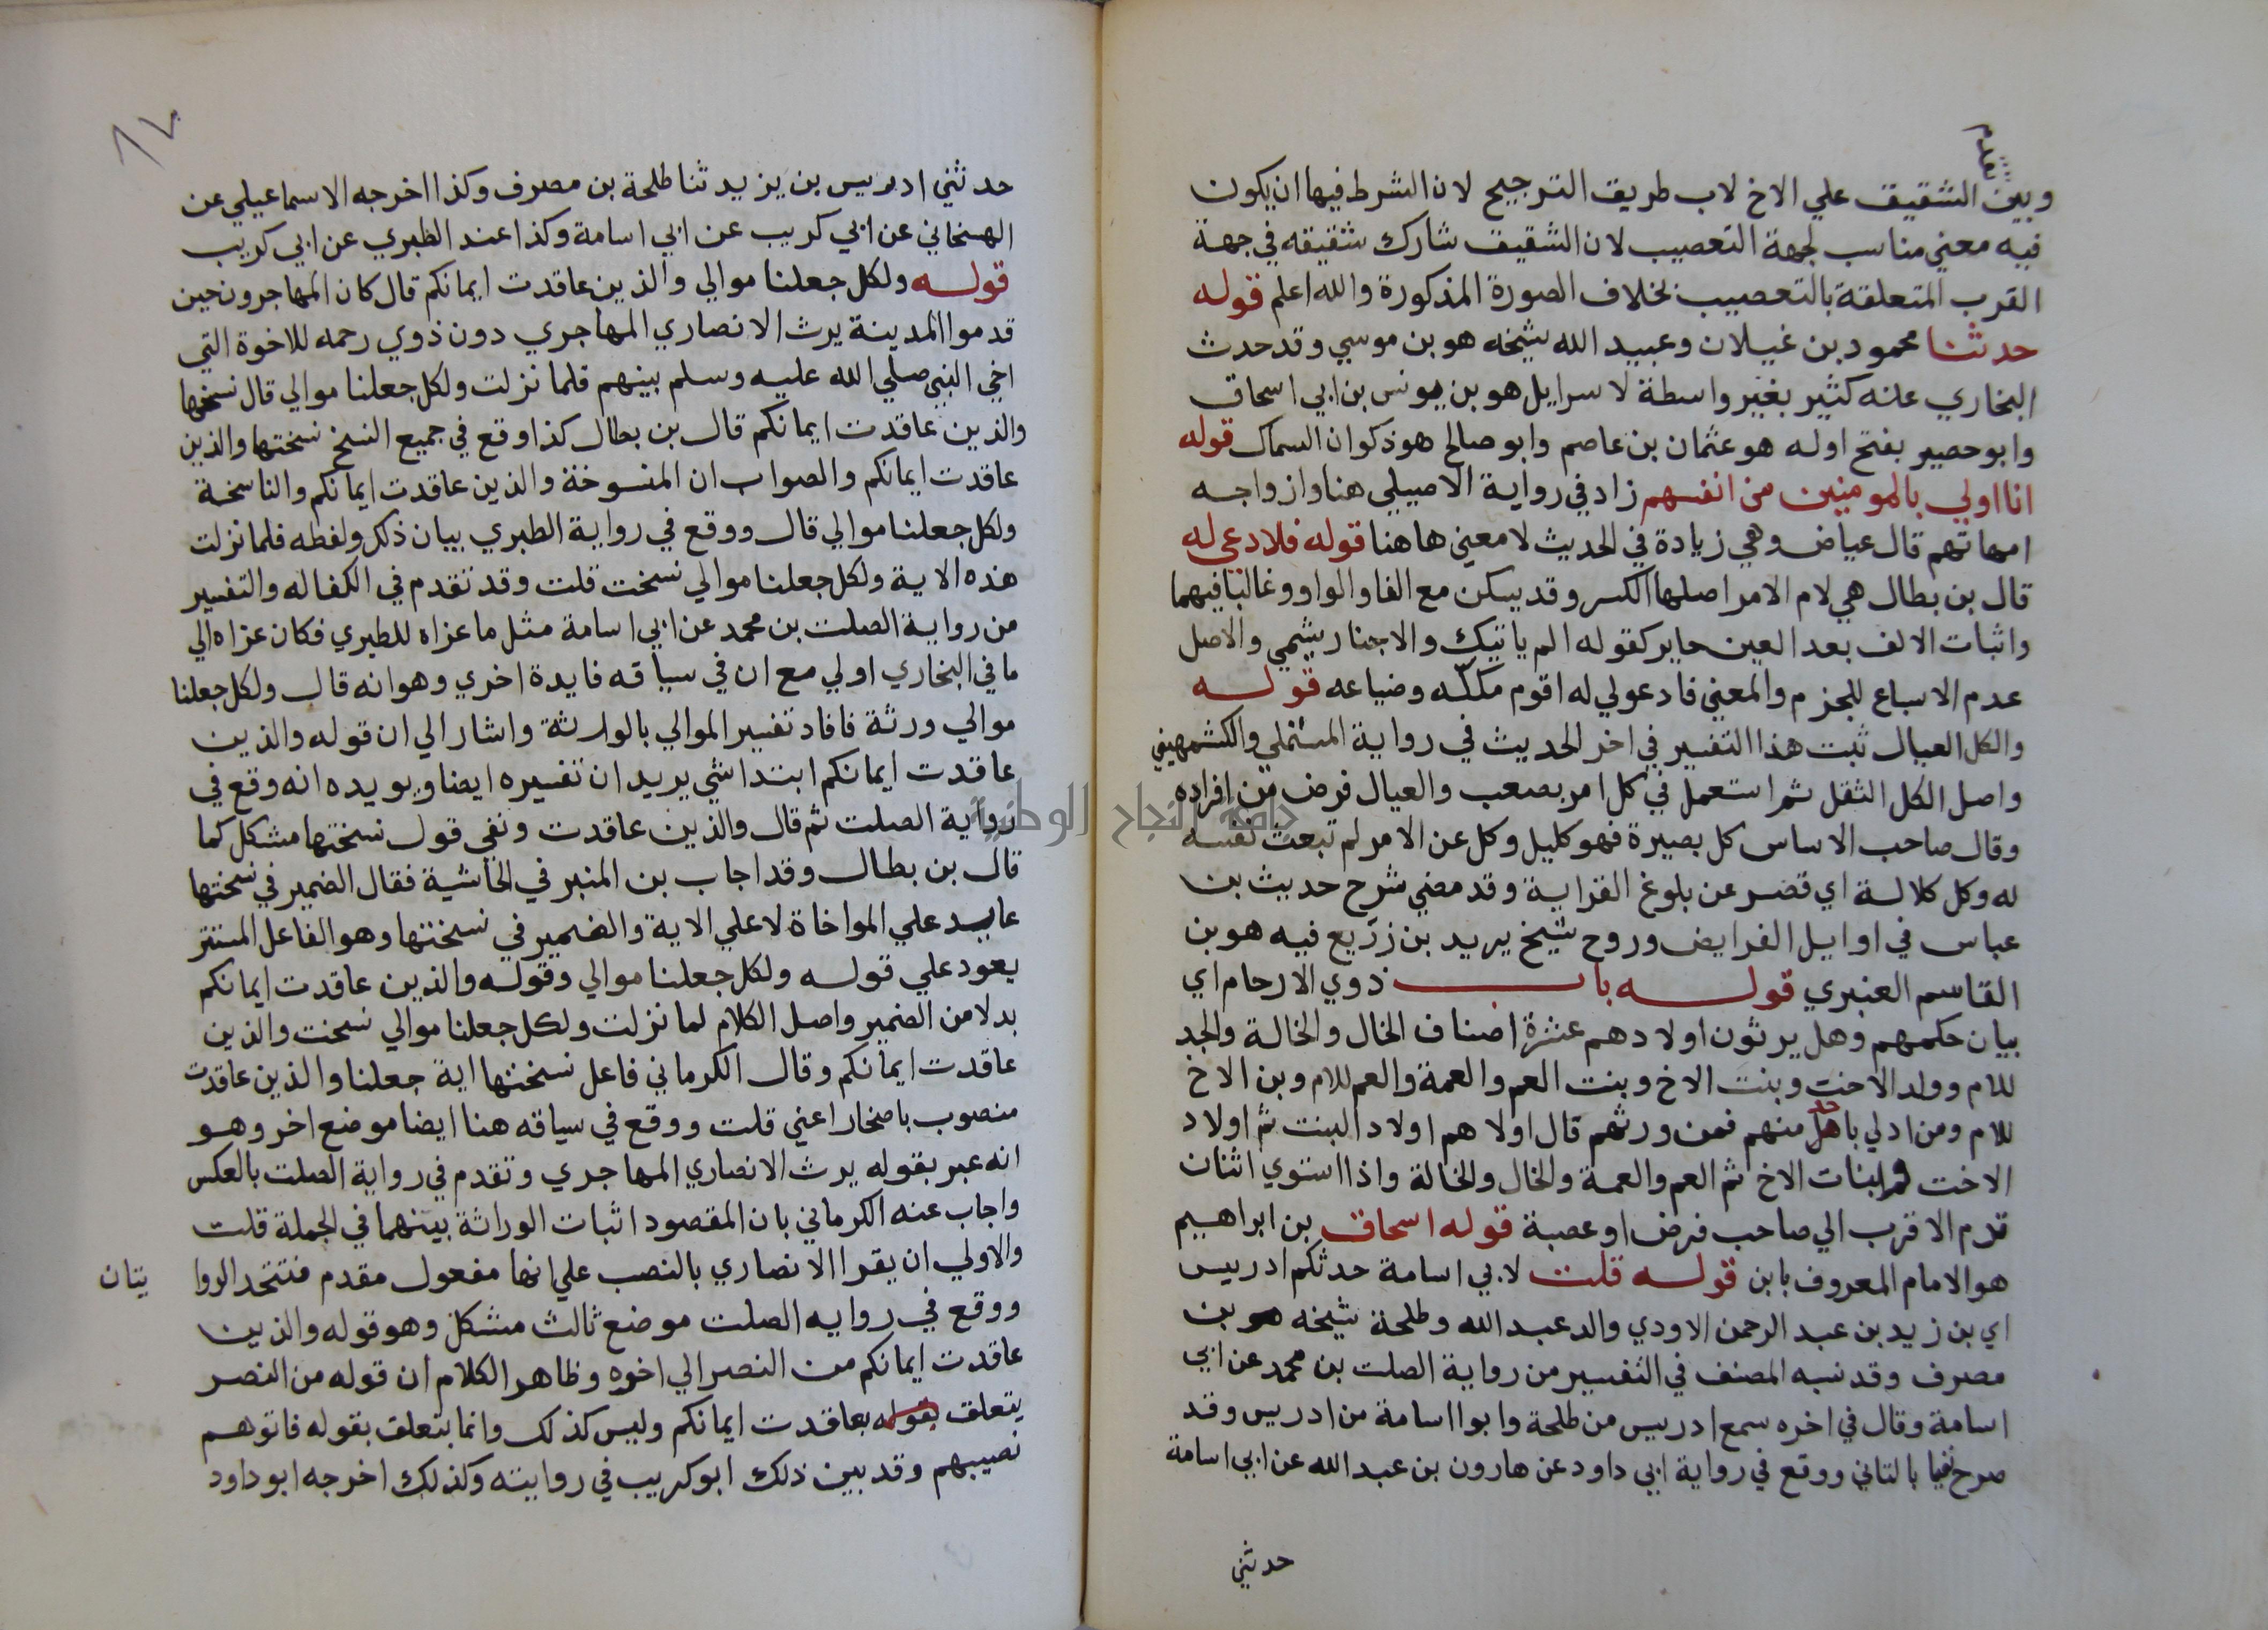 تقدم
وبين الشقيق علي الاخ لاب طريق الترجيح لان الشرط فيها ان يكون
فيه معني مناسب لجهة التعصيب لان الشقيق شارك شقيقه في جهة
القرب المتعلقة بالتعصيب بخلاف الصورة المذكورة والله اعلم قوله
حدثنا محمود بن غيلان وعبيد الله شيخه هو بن موسي وقد حدث
البخاري عنه كثير بغير واسطة لاسرايل هو بن يونس بن ابي اسحاق
وابو حصير بفتح اوله هو عثمان بن عاصم وابو صالح هو ذكوان السماك قوله
انا اولي بالمومنين من انفسهم زاد في رواية الاصيلي هنا وازواجه
امهاتهم قال عياض وهي زيادة في الحديث لا معني ها هنا قوله فلادعي له
قال بن بطال هي لام الامر اصلها الكسر وقد يسكن مع الفا والواو وغالبا فيهما
واثبات الالف بعد العين جايز كقوله الم ياتيك والاجنار يثمي والاصل
عدم الاسباع للجزم والمعني فادعولي له اقوم مكله وضياعه قوله
والكل العيال ثبت هذا التفسير في اخر الحديث في رواية المستملي والكشمهيني
واصل الكل الثقل ثم استعمل في كل امر بصعب والعيال فرض من افراده
وقال صاحب الاساس كل بصيرة فهو كليل وكل عن الامر لم تبعث نفسه
له وكل كلالة اي قصر عن بلوغ القرابة وقد مضي شرح حديث بن
عباس في اوايل الفرايض وروح شيخ يريد بن زريع فيه هو بن
القاسم العنبري قوله باب ذوي الارحام اي
بيان حكمهم وهل يرثون اولا دهم عشرة اصناف الخال والخالة والجد
للام وولد الاخت وبنت الاخ وبنت العم والعمة والعم للام وبن الاخ
للام ومن ادلي باحد منهم فمن ورثهم قال اولاهم اولاد البنت ثم اولاد
الاخت وبنات الاخ ثم العم والعمة والخال والخالة واذا استوي اثنان
قدم الاقرب الي صاحب فرض او عصبة قوله اسحاق بن ابراهيم
هو الامام المعروف بابن قوله قلت لابي اسامة حدثكم ادريس
اي بن زيد بن عبد الرحمن الاودي والد عبد الله وطلحة شيخه هو بن
مصرف وقد نسبه المصنف في التفسير من رواية الصلت بن محمد عن ابي
اسامة وقال في اخره سمع ادريس من طلحة وابوا اسامة من ادريس وقد
صرح فيما بالتاني ووقع في رواية ابي داود عن هارون بن عبد الله عن ابي اسامة
حدثني
٨٧
حدثني ادريس بن يزيد ثنا طلحة بن مصرف وكذا اخرجه الاسماعيلي عن
الهنجاني عن ابي كريب عن ابي اسامة وكذا عند الطبري عن ابي كريب
قوله ولكل جعلنا موالي والذين عاقدت ايمانكم قال كان المهاجرون حين
قدموا المدينة يرث الانصاري المهاجري دون ذوي رحمه للاخوة التي
اخي النبي صلي الله عليه وسلم بينهم فلما نزلت ولكل جعلنا موالي قال نسختها
والذين عاقدت ايمانكم قال بن بطال كذا وقع في جميع النسخ نسختها والذين
عاقدت ايمانكم والصواب ان المنسوخة والذين عاقدت ايمانكم والناسخة
ولكل جعلنا موالي قال ووقع في رواية الطبري بيان ذلك ولفظه فلما نزلت
هذه الاية ولكل جعلنا موالي نسخت قلت وقد تقدم في الكفاله والتفسير
من رواية الصلت بن محمد عن ابي اسامة مثل ما عزاه للطبري فكان عزاه الي
ما في البخاري اولي مع ان في سياقه فايدة اخري وهو انه قال ولكل جعلنا
موالي ورثة فافاد تفسير الموالي بالوارثة واشار الي ان قوله والذين
عاقدت ايمانكم ابتدا شي يريد ان تفسيره ايضا ويويده انه وقع في
رواية الصلت ثم قال والذين عاقدت ونفي قول نسختها مشكل كما
قال بن بطال وقد اجاب بن المنير في الحاشية فقال الضمير في نسختها
عايد علي المواخاة لا علي الاية والضمير في نسختها وهو الفاعل المستتر
يعود علي قوله ولكل جعلنا موالي وقوله والذين عاقدت ايمانكم
بدلا من الضمير واصل الكلام لما نزلت ولكل جعلنا موالي نسخت والذين
عاقدت ايمانكم وقال الكرماني فاعل نسختها اية جعلنا والذين عاقدت
منصوب باضمار اعني قلت ووقع في سياقه هنا ايضا موضع اخر وهو
انه عبر بقوله يرث الانصاري المهاجري وتقدم في رواية الصلت بالعكس
واجاب عنه الكرماني بان المقصود اثبات الوراثة بينهما في الجملة قلت
والاولي ان يقرا الانصاري بالنصب علي انها مفعول مقدم فتتحد الروا يتان
ووقع في روايه الصلت موضع ثالث مشكل وهو قوله والذين
عاقدت ايمانكم من النصر الي اخوه وظاهر الكلام ان قوله من النصر
يتعلق بقوله بعاقدت ايمانكم وليس كذلك وانما يتعلق بقوله فاتوهم
نصيبهم وقد بين ذلك ابو كريب في روايته وكذلك اخرجه ابو داود
جامعة النجاح الوطنية